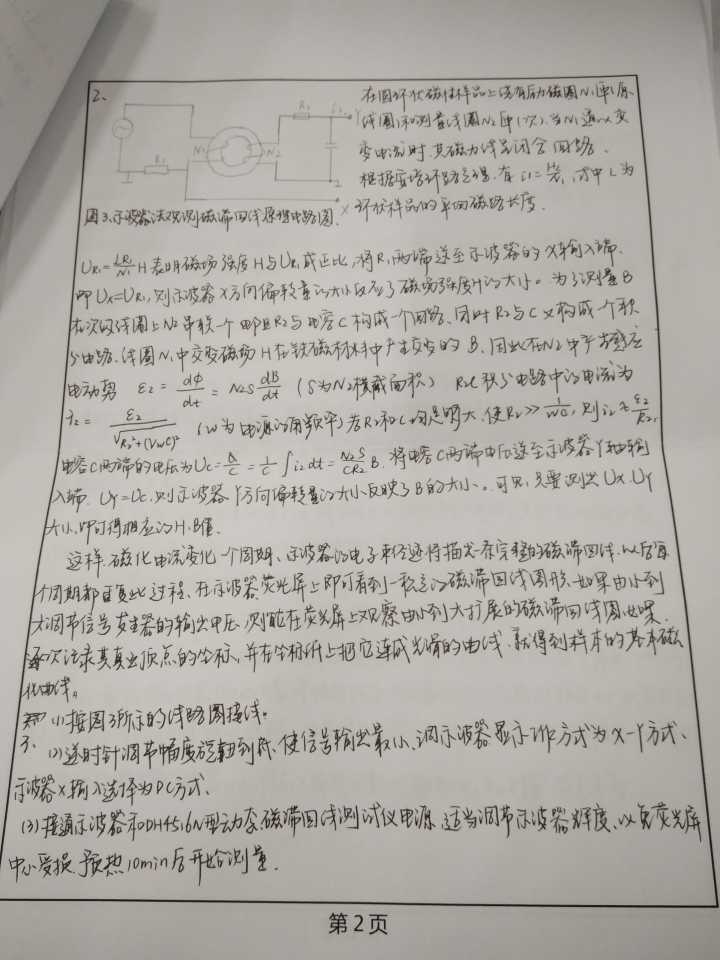 2、
在圆环状磁性样品上绕有励磁线圈N₁匝(原
R₂ i₂ Y
线圈)和测量线圈N₂匝(次).当N₁通以交
N₁ N₂ C
变电流时,其磁力线呈闭合回路.
R₁
根据安培环路定理,有 ,式中L为
图3.示波器法观测磁滞回线原理电路图. X 环状样品的平均磁路长度.
U_R₁ = LR₁/N₁ H 表明磁场强度H与U_R₁成正比,将R₁两端送至示波器的X轴输入端.
即Uₓ=U_R₁,则示波器X方向偏转量的大小反应了磁场强度H的大小。为了测量B
在次级线圈上N₂串联一个电阻R₂与电容C构成一个回路.同时R₂与C又构成一个积
分电路.线圈N₁中交变磁场H在铁磁材料中产生交变的B.因此在N₂中产生感应
电动势 ε₂ = dΦ/dt = N₂S dB/dt (S为N₂横截面积) R₂C积分电路中的电流为
i₂ = ε₂/√R₂²+(1/wC)² (w为电源的角频率)若R₂和C均足够大,使R₂≫1/wC,则i₂≈ε₂/R₂,
电容C两端的电压为Uc=Q/C=1/C ∫i₂dt = N₂S/CR₂ B.将电容C两端电压送至示波器Y轴输
入端.U_Y=Uc,则示波器Y方向偏转量的大小反映了B的大小。可见,只要测出Uₓ.U_Y
大小,即可得相应的H.B值.
这样.磁化电流变化一个周期、示波器的电子束径迹将描出一条完整的磁滞回线.以后每
个周期都重复此过程.在示波器荧光屏上即可看到一稳定的磁滞回线图形.如果由小到
大调节信号发生器的输出电压,则能在荧光屏上观察由小到大扩展的磁滞回线图.如果
逐次记录其真正顶点的坐标,并在坐标纸上把它连成光滑的曲线、就得到样本的基本磁
化曲线。
3、 (1)按图3所示的线路图接线。
(2)逆时针调节幅度旋钮到底、使信号输出最小、调示波器显示工作方式为X-Y方式、
示波器X输入选择为DC方式、
(3)接通示波器和DH4516N型动态磁滞回线测试仪电源.适当调节示波器辉度、以免荧光屏
中心受损.预热10min后开始测量.
第2页